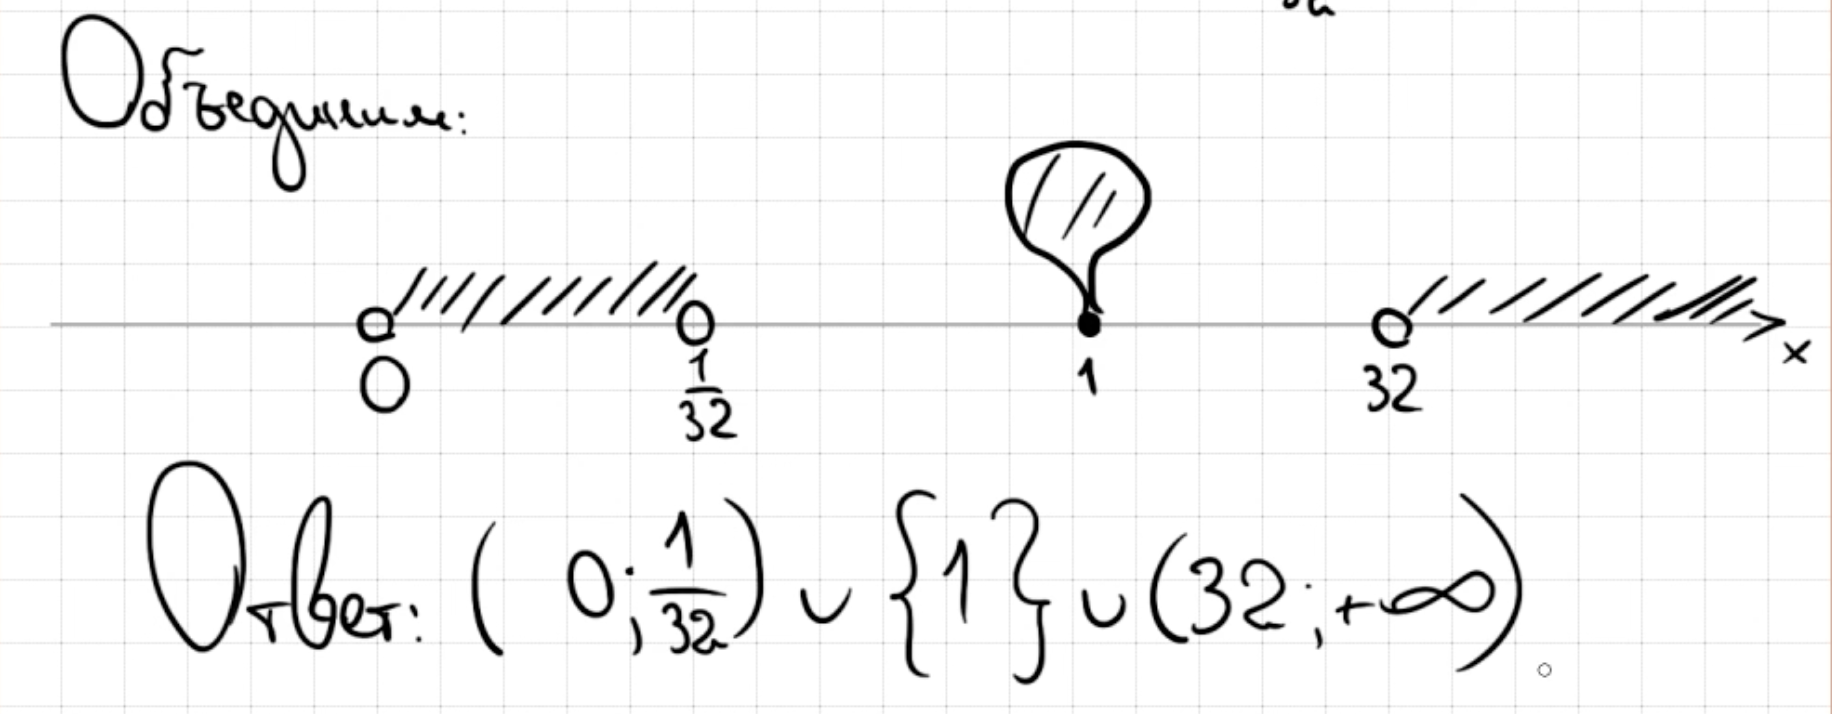 Объединим:
0 1/32 1 32 x
Ответ: (0; 1/32) ∪ {1} ∪ (32; +∞)